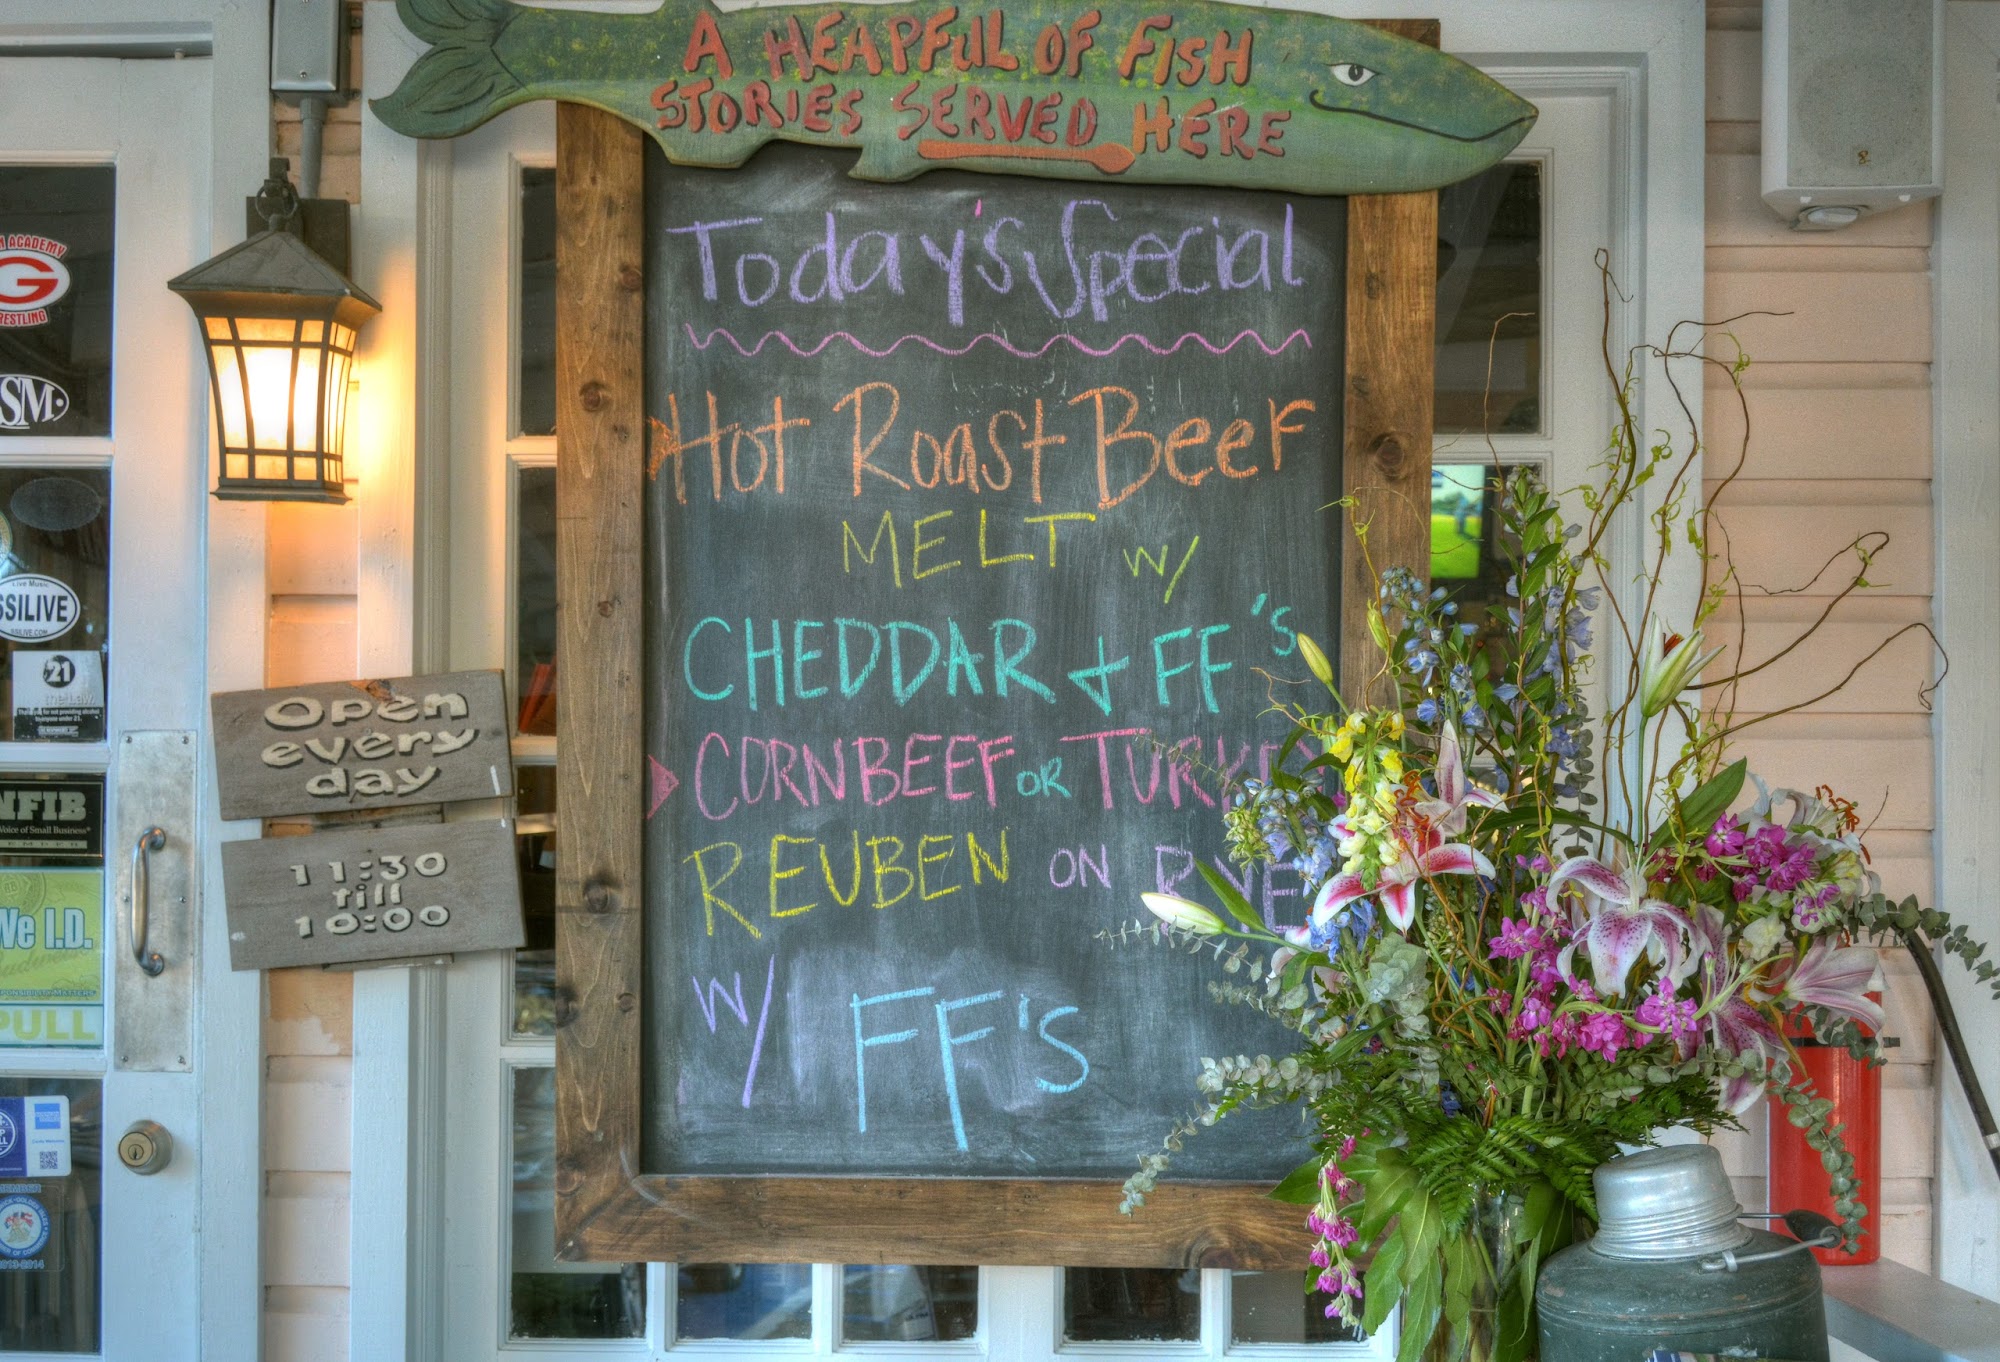 A HEAPFUL OF FISH
STORIES SERVED HERE
Today's Special
Hot Roast Beef
MELT w/
CHEDDAR + FF's
CORNBEEF OR TURKEY
REUBEN ON RYE
w/ FF's
Open
every
day
11:30
till
10:00
ACADEMY
G
SM
Live Music
SSILIVE
SSILIVE.COM
21
NFIB
Voice of Small Business
We I.D.
PULL
2013-2014